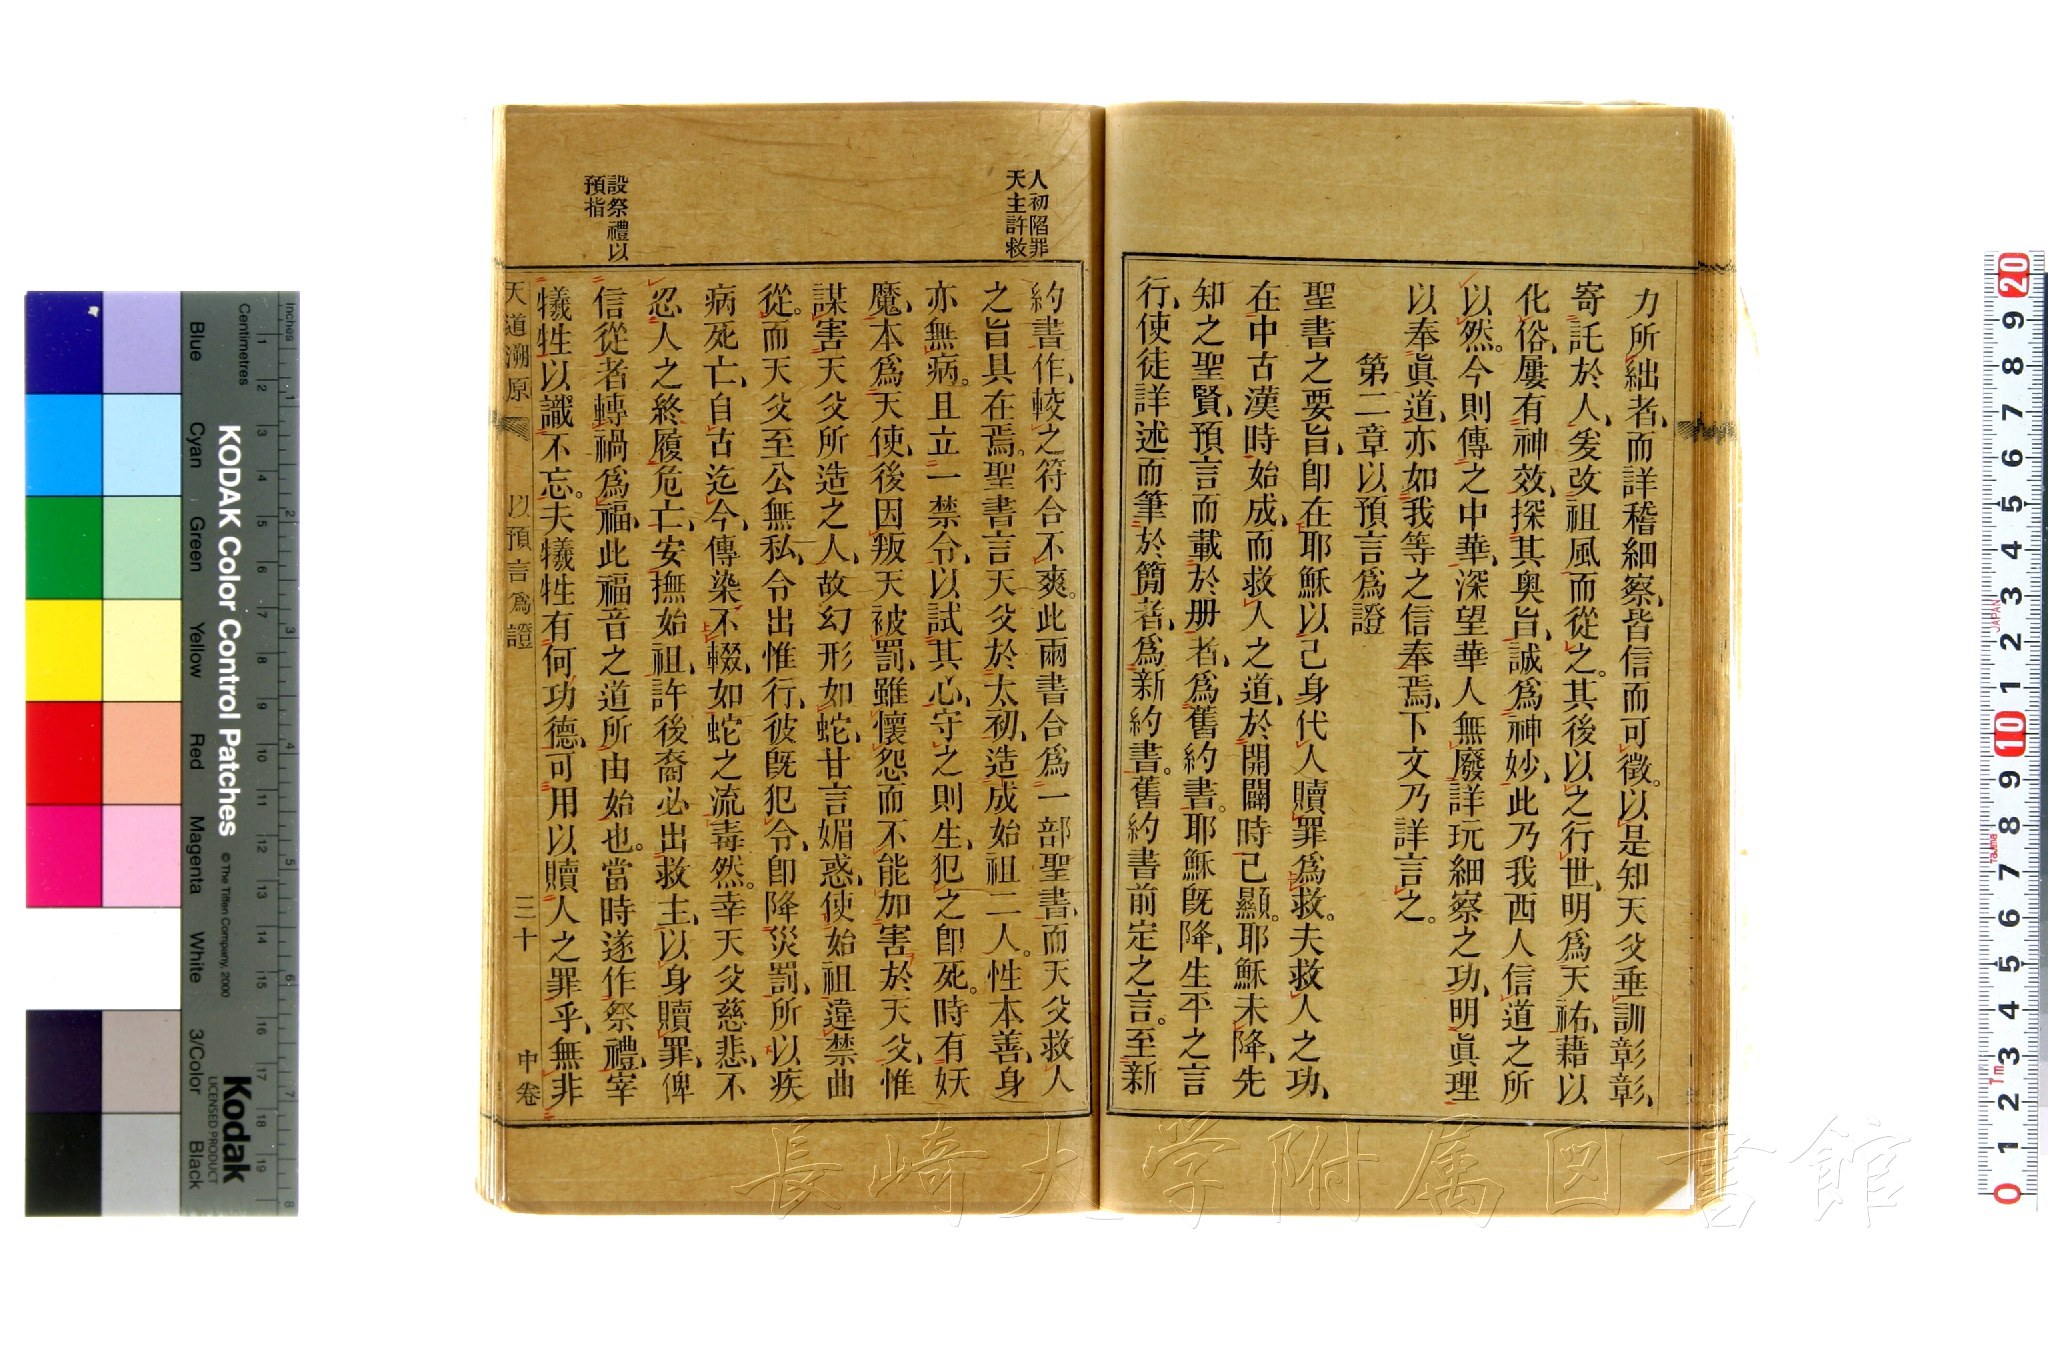 力所絀者、而詳稽細察、皆信而可徵。以是知天父垂訓彰彰、
寄託於人、爰改祖風而從之。其後以之行世、明爲天祐、藉以
化俗、屢有神效、探其奥旨、誠爲神妙、此乃我西人信道之所
以然。今則傳之中華、深望華人無廢詳玩細察之功、明眞理
以奉眞道、亦如我等之信奉焉、下文乃詳言之。
第二章以預言爲證
聖書之要旨、卽在耶穌以己身代人贖罪爲救。夫救人之功、
在中古漢時始成、而救人之道、於開闢時已顯。耶穌未降、先
知之聖賢、預言而載於册者、爲舊約書。耶穌旣降、生平之言
行、使徒詳述而筆於簡者、爲新約書。舊約書前定之言。至新
人初陷罪
天主許救
約書作、較之符合不爽。此兩書合爲一部聖書、而天父救人
之旨具在焉。聖書言天父於太初、造成始祖二人。性本善、身
亦無病。且立一禁令、以試其心、守之則生、犯之卽死。時有妖
魔、本爲天使、後因叛天被罰、雖懷怨而不能加害於天父、惟
謀害天父所造之人、故幻形如蛇、甘言媚惑、使始祖違禁曲
從。而天父至公無私、令出惟行、彼旣犯令、卽降災罰、所以疾
病死亡、自古迄今、傳染不輟、如蛇之流毒然。幸天父慈悲、不
忍人之終履危亡、安撫始祖、許後裔必出救主、以身贖罪、俾
信從者轉禍爲福、此福音之道所由始也。當時遂作祭禮、宰
犧牲以識不忘。夫犧牲有何功德、可用以贖人之罪乎、無非
設祭禮以
預指
天道溯原 以預言爲證 三十 中卷
KODAK Color Control Patches
© The Tiffen Company, 2000
Kodak
LICENSED PRODUCT
Inches
Centimetres
Blue Cyan Green Yellow Red Magenta White 3/Color Black
1 2 3 4 5 6 7 8
1 2 3 4 5 6 7 8 9 10 11 12 13 14 15 16 17 18 19
20 9 8 7 6 5 4 3 2 1 10 9 8 7 6 5 4 3 2 1 0
JAPAN
Tajima
長崎大学附属図書館